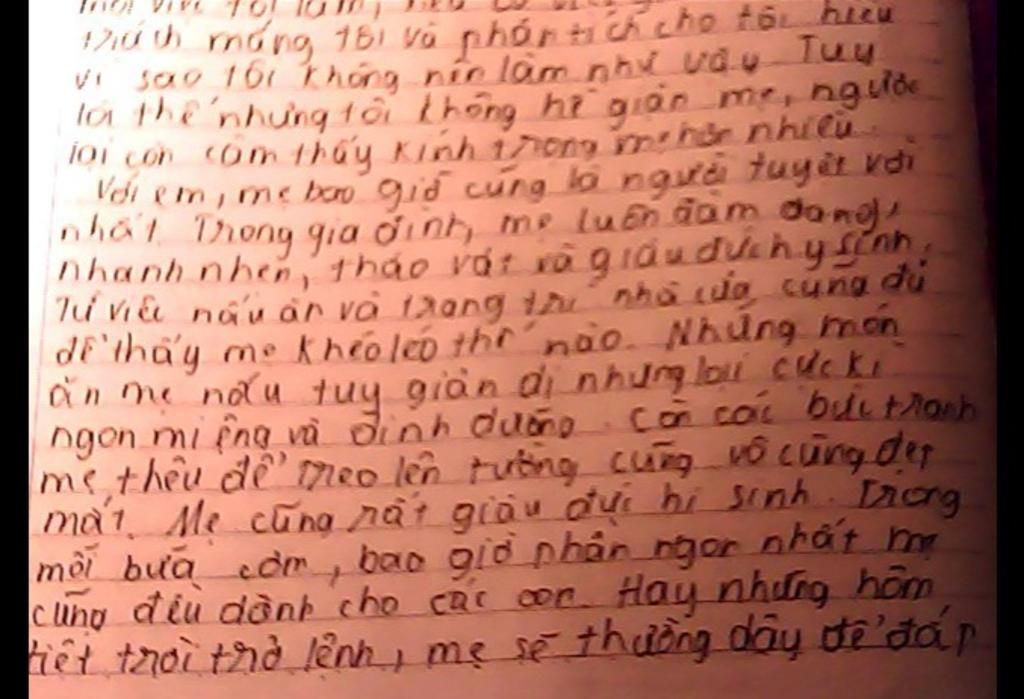 mỗi việc tôi làm, nếu có
trách mắng tôi và phân tích cho tôi hiểu
vì sao tôi không nên làm như vậy Tuy
là thế nhưng tôi không hề giận mẹ, ngược
lại còn cảm thấy kính trọng mẹ hơn nhiều.
Với em, mẹ bao giờ cũng là người tuyệt vời
nhất. Trong gia đình, mẹ luôn đảm đang,
nhanh nhẹn, tháo vát và giàu đức hy sinh.
Từ việc nấu ăn và trang trí nhà cửa cũng đủ
để thấy mẹ khéo léo thế nào. Những món
ăn mẹ nấu tuy giản dị nhưng lại cực kì
ngon miệng và dinh dưỡng. Còn các bức tranh
mẹ thêu để treo lên tường cũng vô cùng đẹp
mắt. Mẹ cũng rất giàu đức hi sinh. Trong
mỗi bữa cơm, bao giờ phần ngon nhất mẹ
cũng đều dành cho các con. Hay những hôm
tiết trời trở lênh, mẹ sẽ thường dậy để đắp